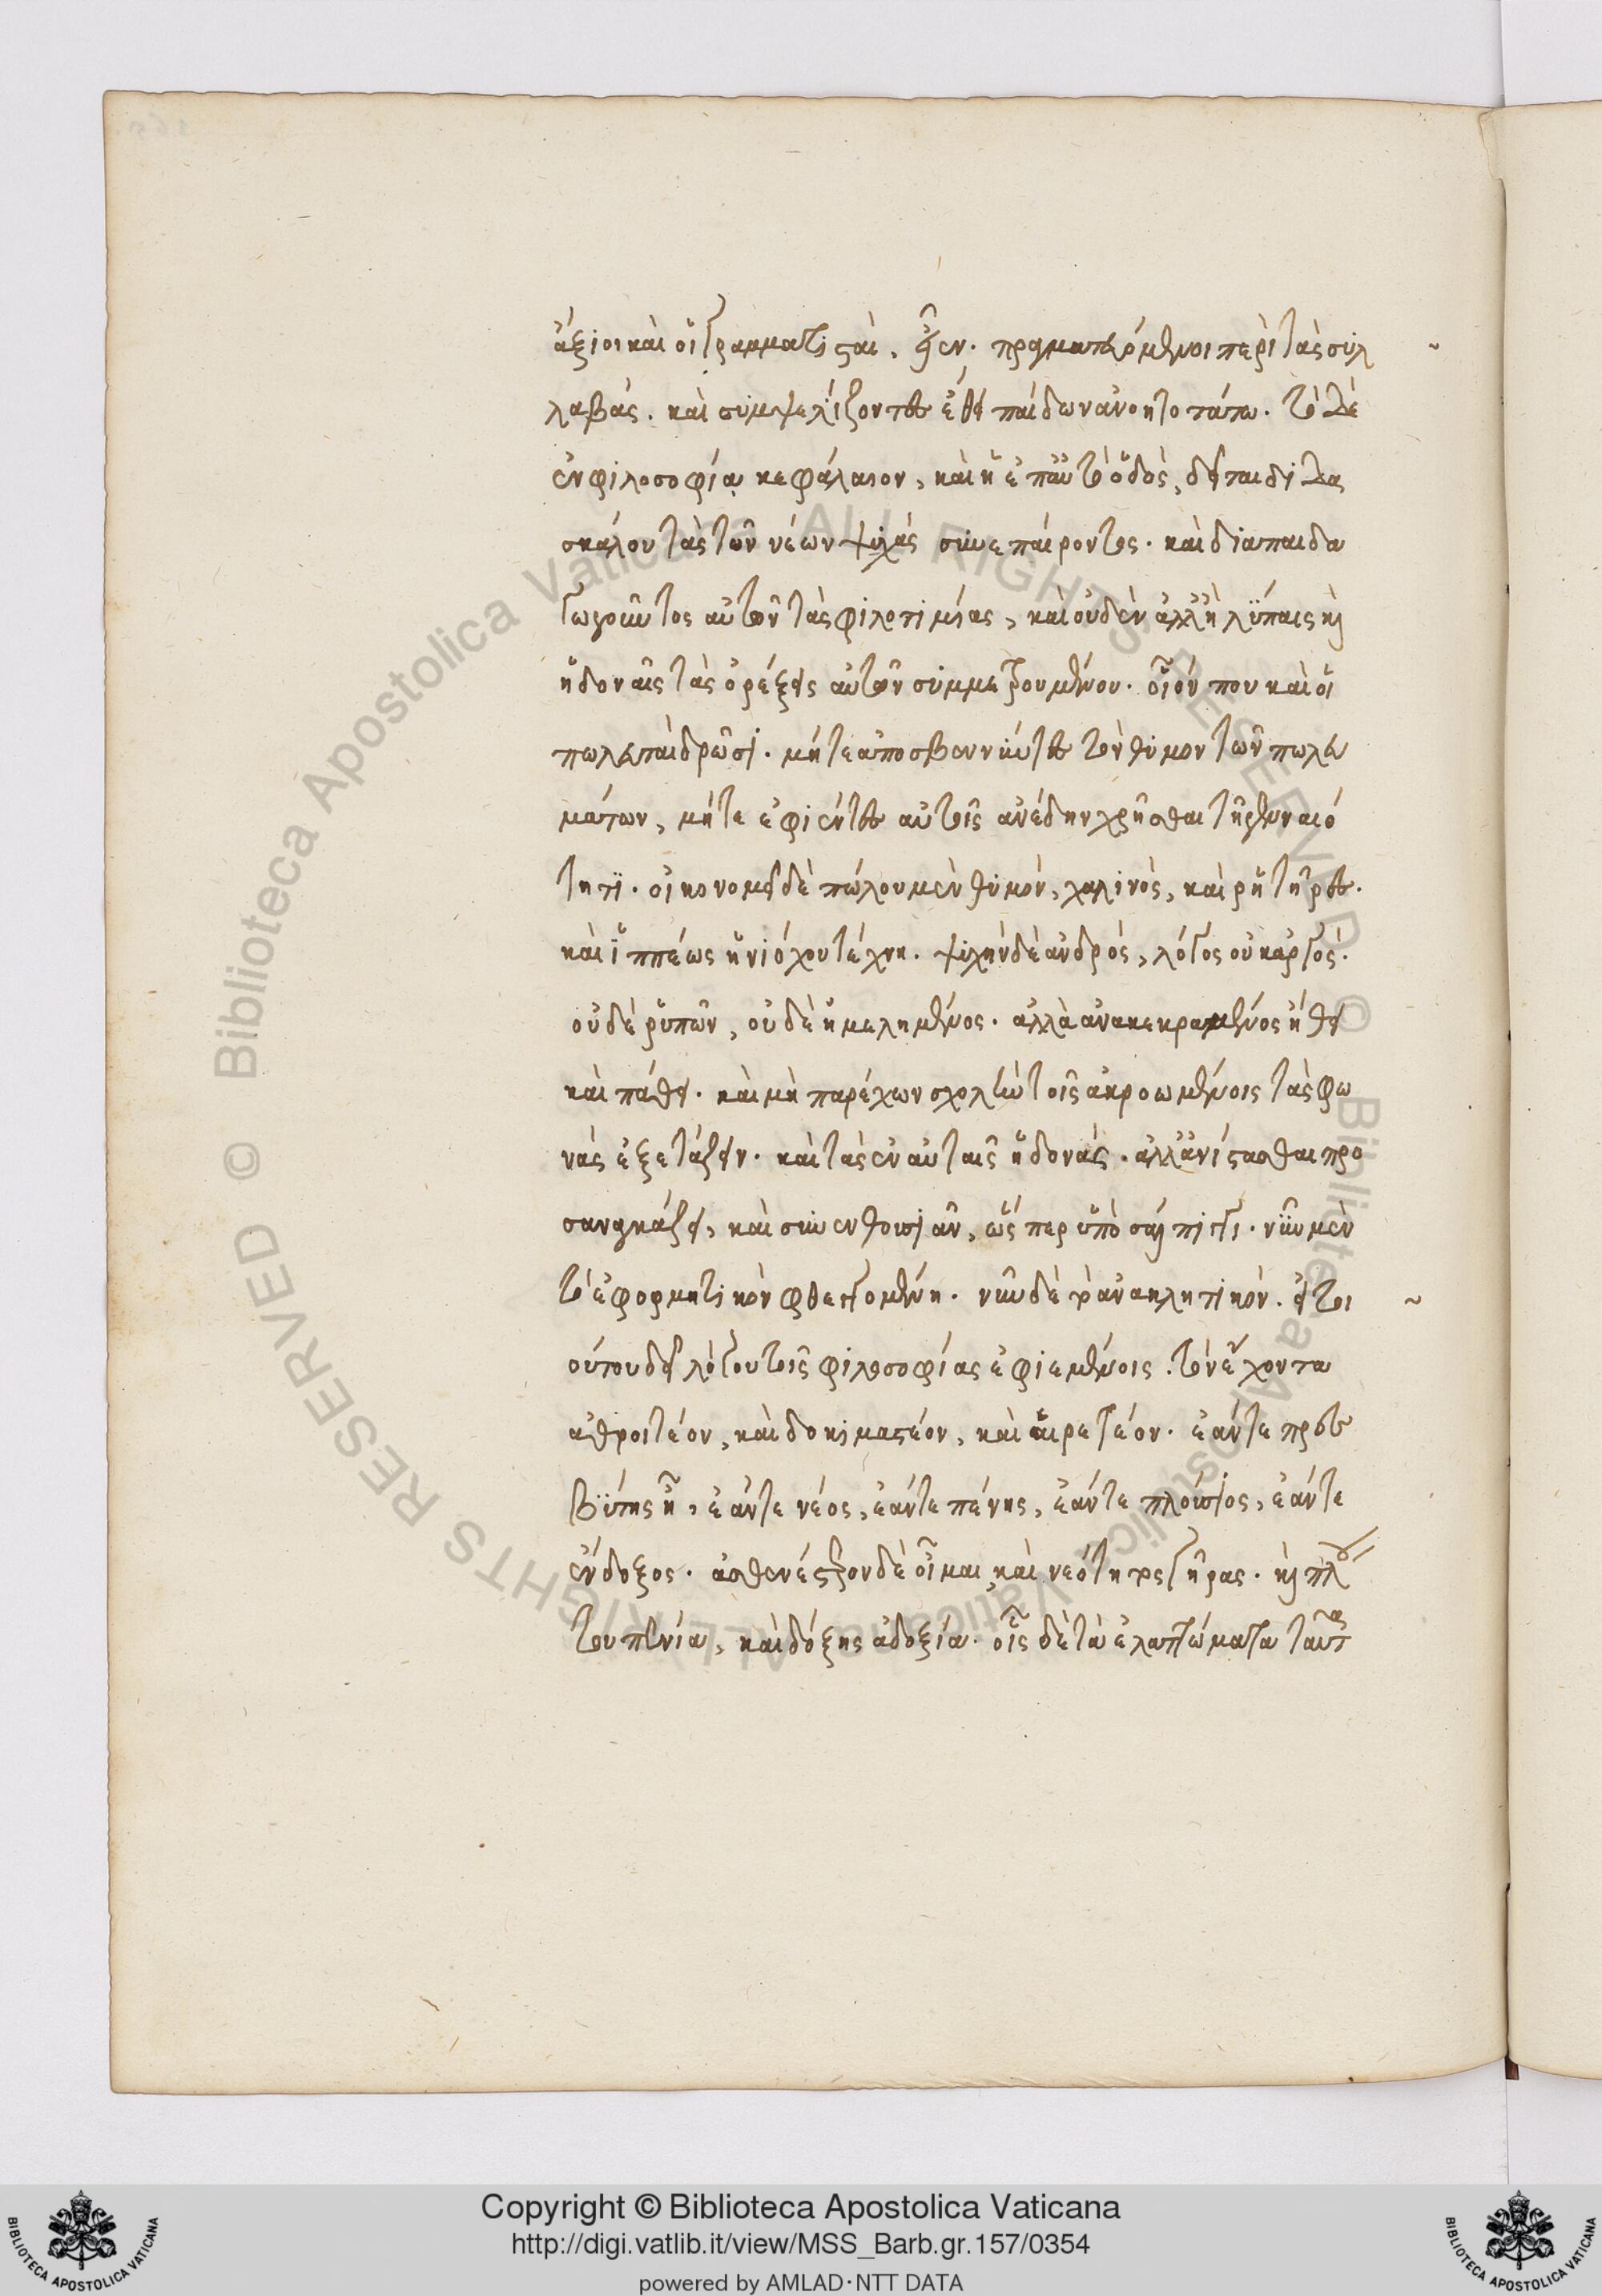 ἄξιοι καὶ οἱ γραμματισταὶ, ἔθνος πραγματευόμενοι περὶ τὰς συλ
λαβὰς. καὶ συμψελίζοντες ἔθει παίδων ἀνοητοτάτω. τὸ δὲ
ἐν φιλοσοφίᾳ κεφάλαιον, καὶ ἡ ἐπ' αὐτὸ ὁδὸς, δεῖται διδα
σκάλου τὰς τῶν νέων ψυχὰς συνεπαίροντος. καὶ διαπαιδα
γωγοῦντος αὐτῶν τὰς φιλοτιμίας, καὶ οὐδὲν ἀλλ' ἢ λύπαις κὶ
ἡδοναῖς τὰς ὀρέξεις αὐτῶν συμμετρουμένου. οἷόν που καὶ οἱ
πωλευταὶ δρῶσι. μήτε ἀποσβεννύντες τὸν θυμὸν τῶν πωλευ
μάτων, μήτε ἐφιέντες αὐτοῖς ἀνέδην χρῆσθαι τῇ γενναιό
τητι. οἰκονομεῖ δὲ πώλου μὲν θυμὸν, χαλινὸς, καὶ ῥυτῆρες.
καὶ ἱππέως ἡνιόχου τέχνη. ψυχὴν δὲ ἀνδρὸς, λόγος οὐκ ἀργός.
οὐδὲ ῥυπῶν, οὐδὲ ἠμελημένος. ἀλλὰ ἀνακεκραμένος ἤθει
καὶ πάθει. καὶ μὴ παρέχων σχολὴν τοῖς ἀκροωμένοις τὰς φω
νὰς ἐξετάζειν. καὶ τὰς ἐν αὐταῖς ἡδονάς. ἀλλ' ἀνίστασθαι προ
σαναγκάζει, καὶ συνενθουσιᾶν, ὥσπερ ὑπὸ σάλπιγγι. νῦν μὲν
τὸ ἐφορμητικὸν φθεγγομένη. νῦν δὲ τὸ ἀνακλητικόν. εἴ τοι
ούτου δεῖ λόγου τοῖς φιλοσοφίας ἐφιεμένοις. τὸν ἔχοντα
ἀθροιτέον, καὶ δοκιμαστέον, καὶ αἱρετέον. ἐάντε πρεσ
βύτης ᾖ, ἐάντε νέος, ἐάντε πένης, ἐάντε πλούσιος, ἐάντε
ἔνδοξος. ἀσθενέστερον δὲ οἶμαι καὶ νεότητος γῆρας. κὶ πλού
του πενία, καὶ δόξης ἀδοξία. οἷς δὲ τὰ ἐλαττώματα ταῦτα
Copyright © Biblioteca Apostolica Vaticana
http://digi.vatlib.it/view/MSS_Barb.gr.157/0354
powered by AMLAD·NTT DATA